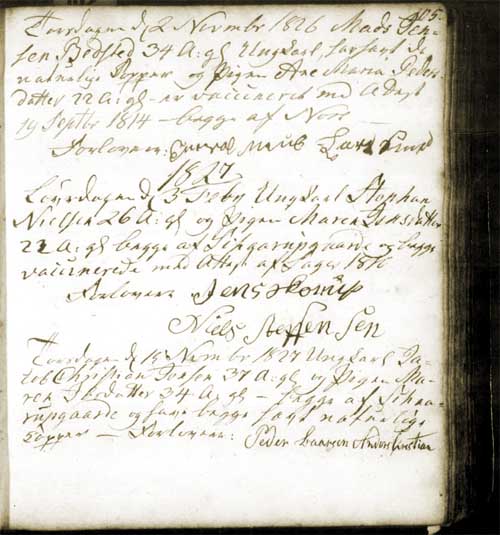 105.
Torsdagen d 2 Novembr 1826 Mads Jen-
sen Bedsted 34 A: gl Ungkarl, har havt de
naturlige Kopper og Pigen Ane Maria Peders-
datter 22 A: gl – er vaccineret med Attest
19 Septbr 1814 – begge af Nors
Forlovere: Lars
1827
Løverdagen d 3 Feby Ungkarl Stephan
Nielsen 26 A: gl og Pigen Maren datter
22 A: gl begge af og begge
vaccinerede med Attest af 1816
Forlovere Jens
Niels Steffensen
Torsdagen d 15 Novembr 1827 Ungkarl Ja-
cob Christian Jensen 37 A: gl og Pigen Ma-
ren datter 34 A: gl – begge af
og have begge havt naturlige
Kopper – Forlovere: Peder Laarsen Anders Cristian